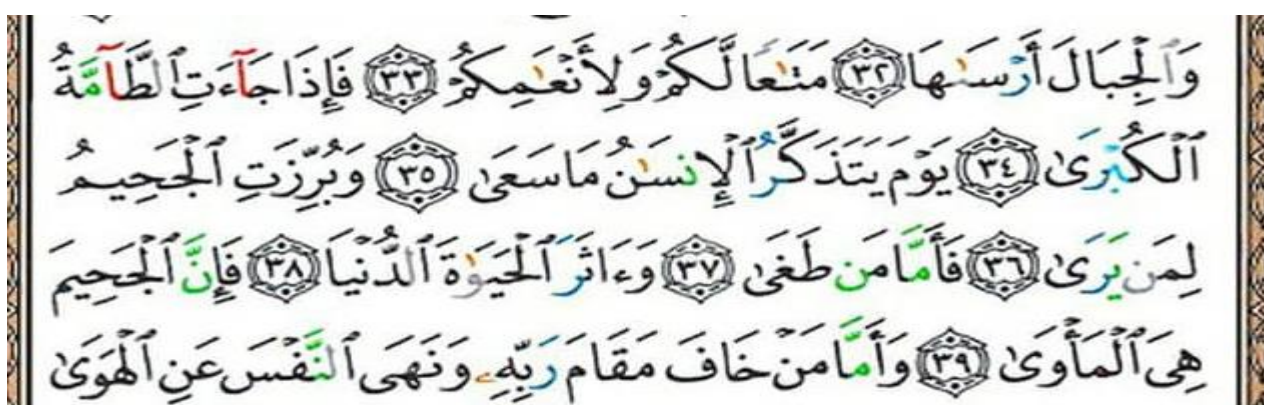 وَٱلْجِبَالَ أَرْسَىٰهَا ٣٢ مَتَـٰعًا لَّكُمْ وَلِأَنْعَـٰمِكُمْ ٣٣ فَإِذَا جَآءَتِ ٱلطَّآمَّةُ
ٱلْكُبْرَىٰ ٣٤ يَوْمَ يَتَذَكَّرُ ٱلْإِنسَـٰنُ مَا سَعَىٰ ٣٥ وَبُرِّزَتِ ٱلْجَحِيمُ
لِمَن يَرَىٰ ٣٦ فَأَمَّا مَن طَغَىٰ ٣٧ وَءَاثَرَ ٱلْحَيَوٰةَ ٱلدُّنْيَا ٣٨ فَإِنَّ ٱلْجَحِيمَ
هِىَ ٱلْمَأْوَىٰ ٣٩ وَأَمَّا مَنْ خَافَ مَقَامَ رَبِّهِۦ وَنَهَى ٱلنَّفْسَ عَنِ ٱلْهَوَىٰ